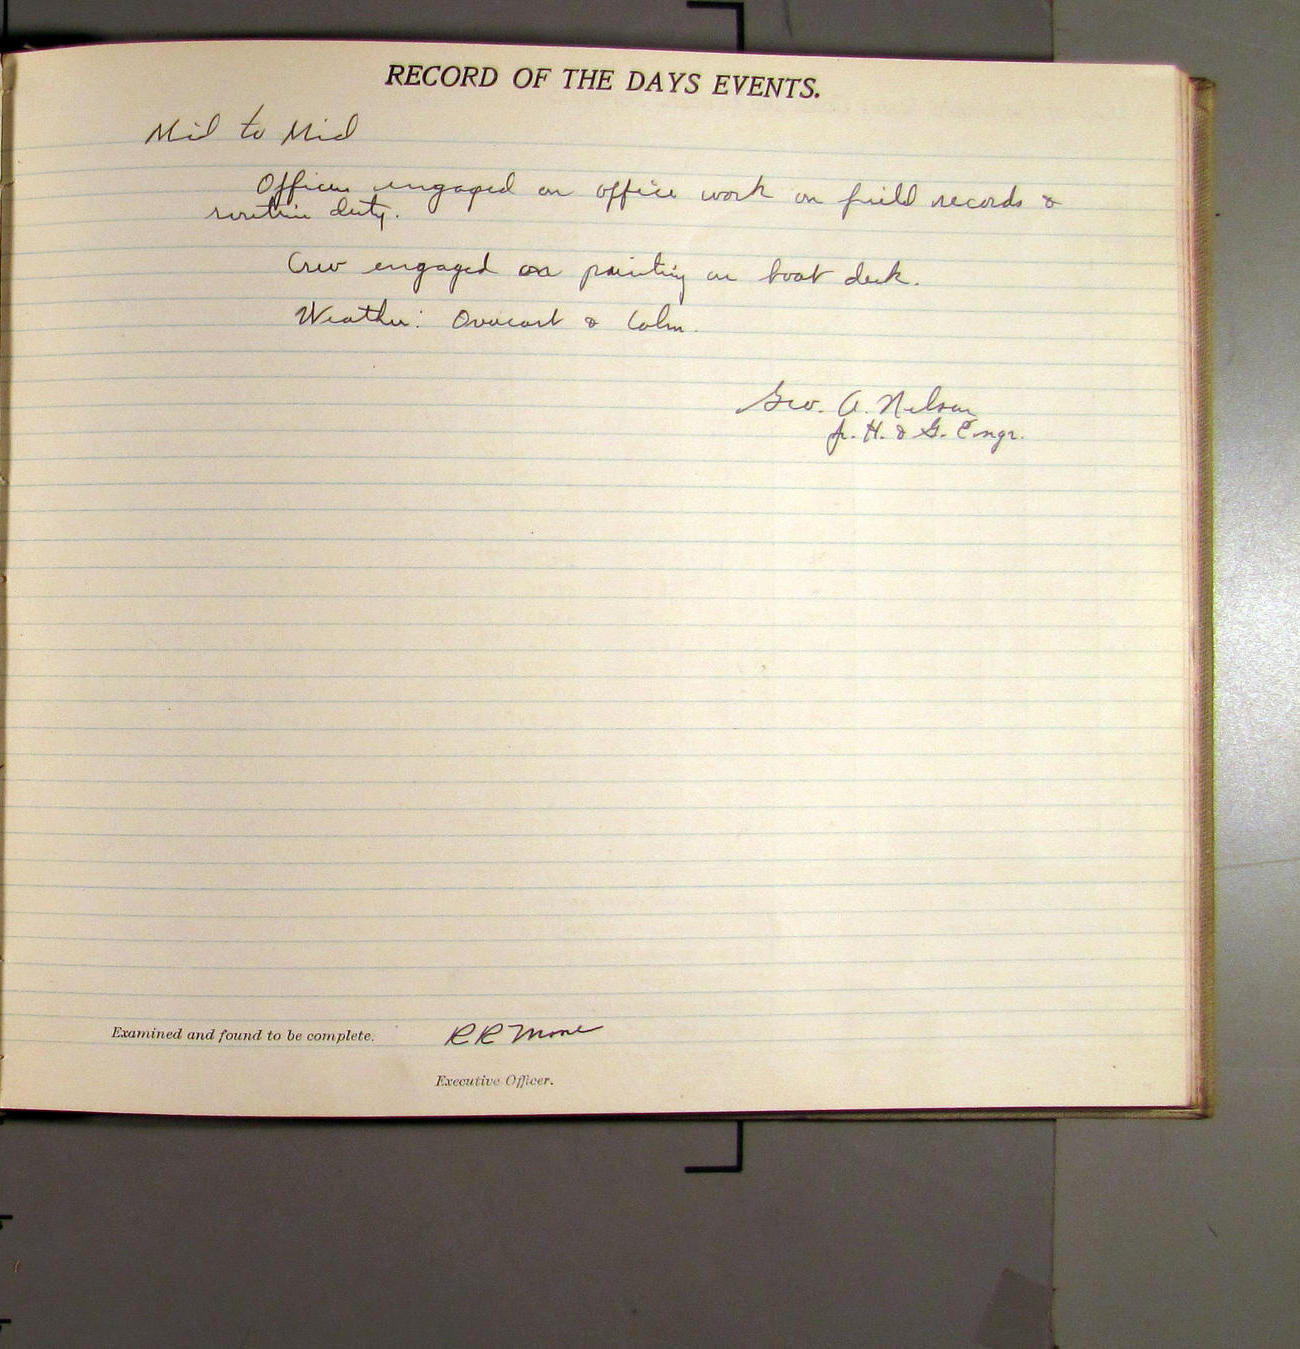 RECORD OF THE DAYS EVENTS.
Mid to Mid
Officers engaged on office work on field records &
routine duty.
Crew engaged on painting on boat deck.
Weather: Overcast & Calm.
Geo. A. Nelson
Jr. H. & G. Engr.
Examined and found to be complete. R R Moore
Executive Officer.